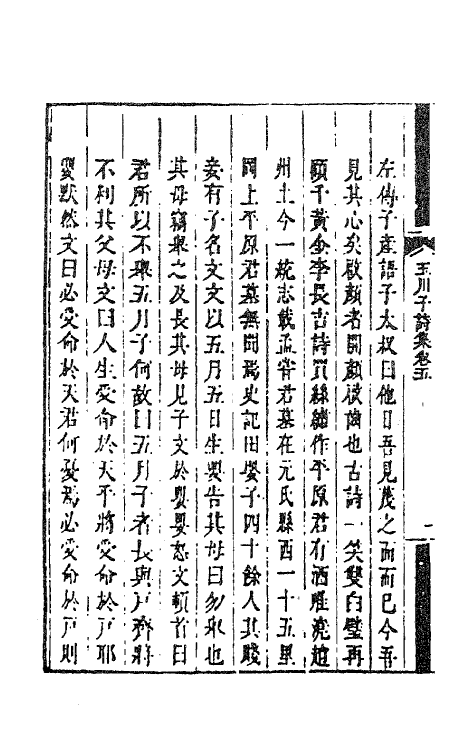 玉川子詩集卷五
一
左傳子產語子太叔曰他日吾見蔑之面而已今吾
見其心矣啟顏者開顏齒也古詩一笑雙白璧再
顧千黃金李長吉詩買絲繡作平原君有酒唯澆趙
州土今一統志載孟嘗君墓在元氏縣西一十五里
岡上平原君墓無聞焉史記田嬰子四十餘人其賤
妾有子名文文以五月五日生嬰告其母曰勿舉也
其母竊舉之及長其母見子文於嬰嬰怒文頓首曰
君所以不舉五月子何故曰五月子者長與戶齊將
不利其父母文曰人生受命於天乎將受命於戶耶
嬰默然文曰必受命於天君何憂焉必受命於戶則